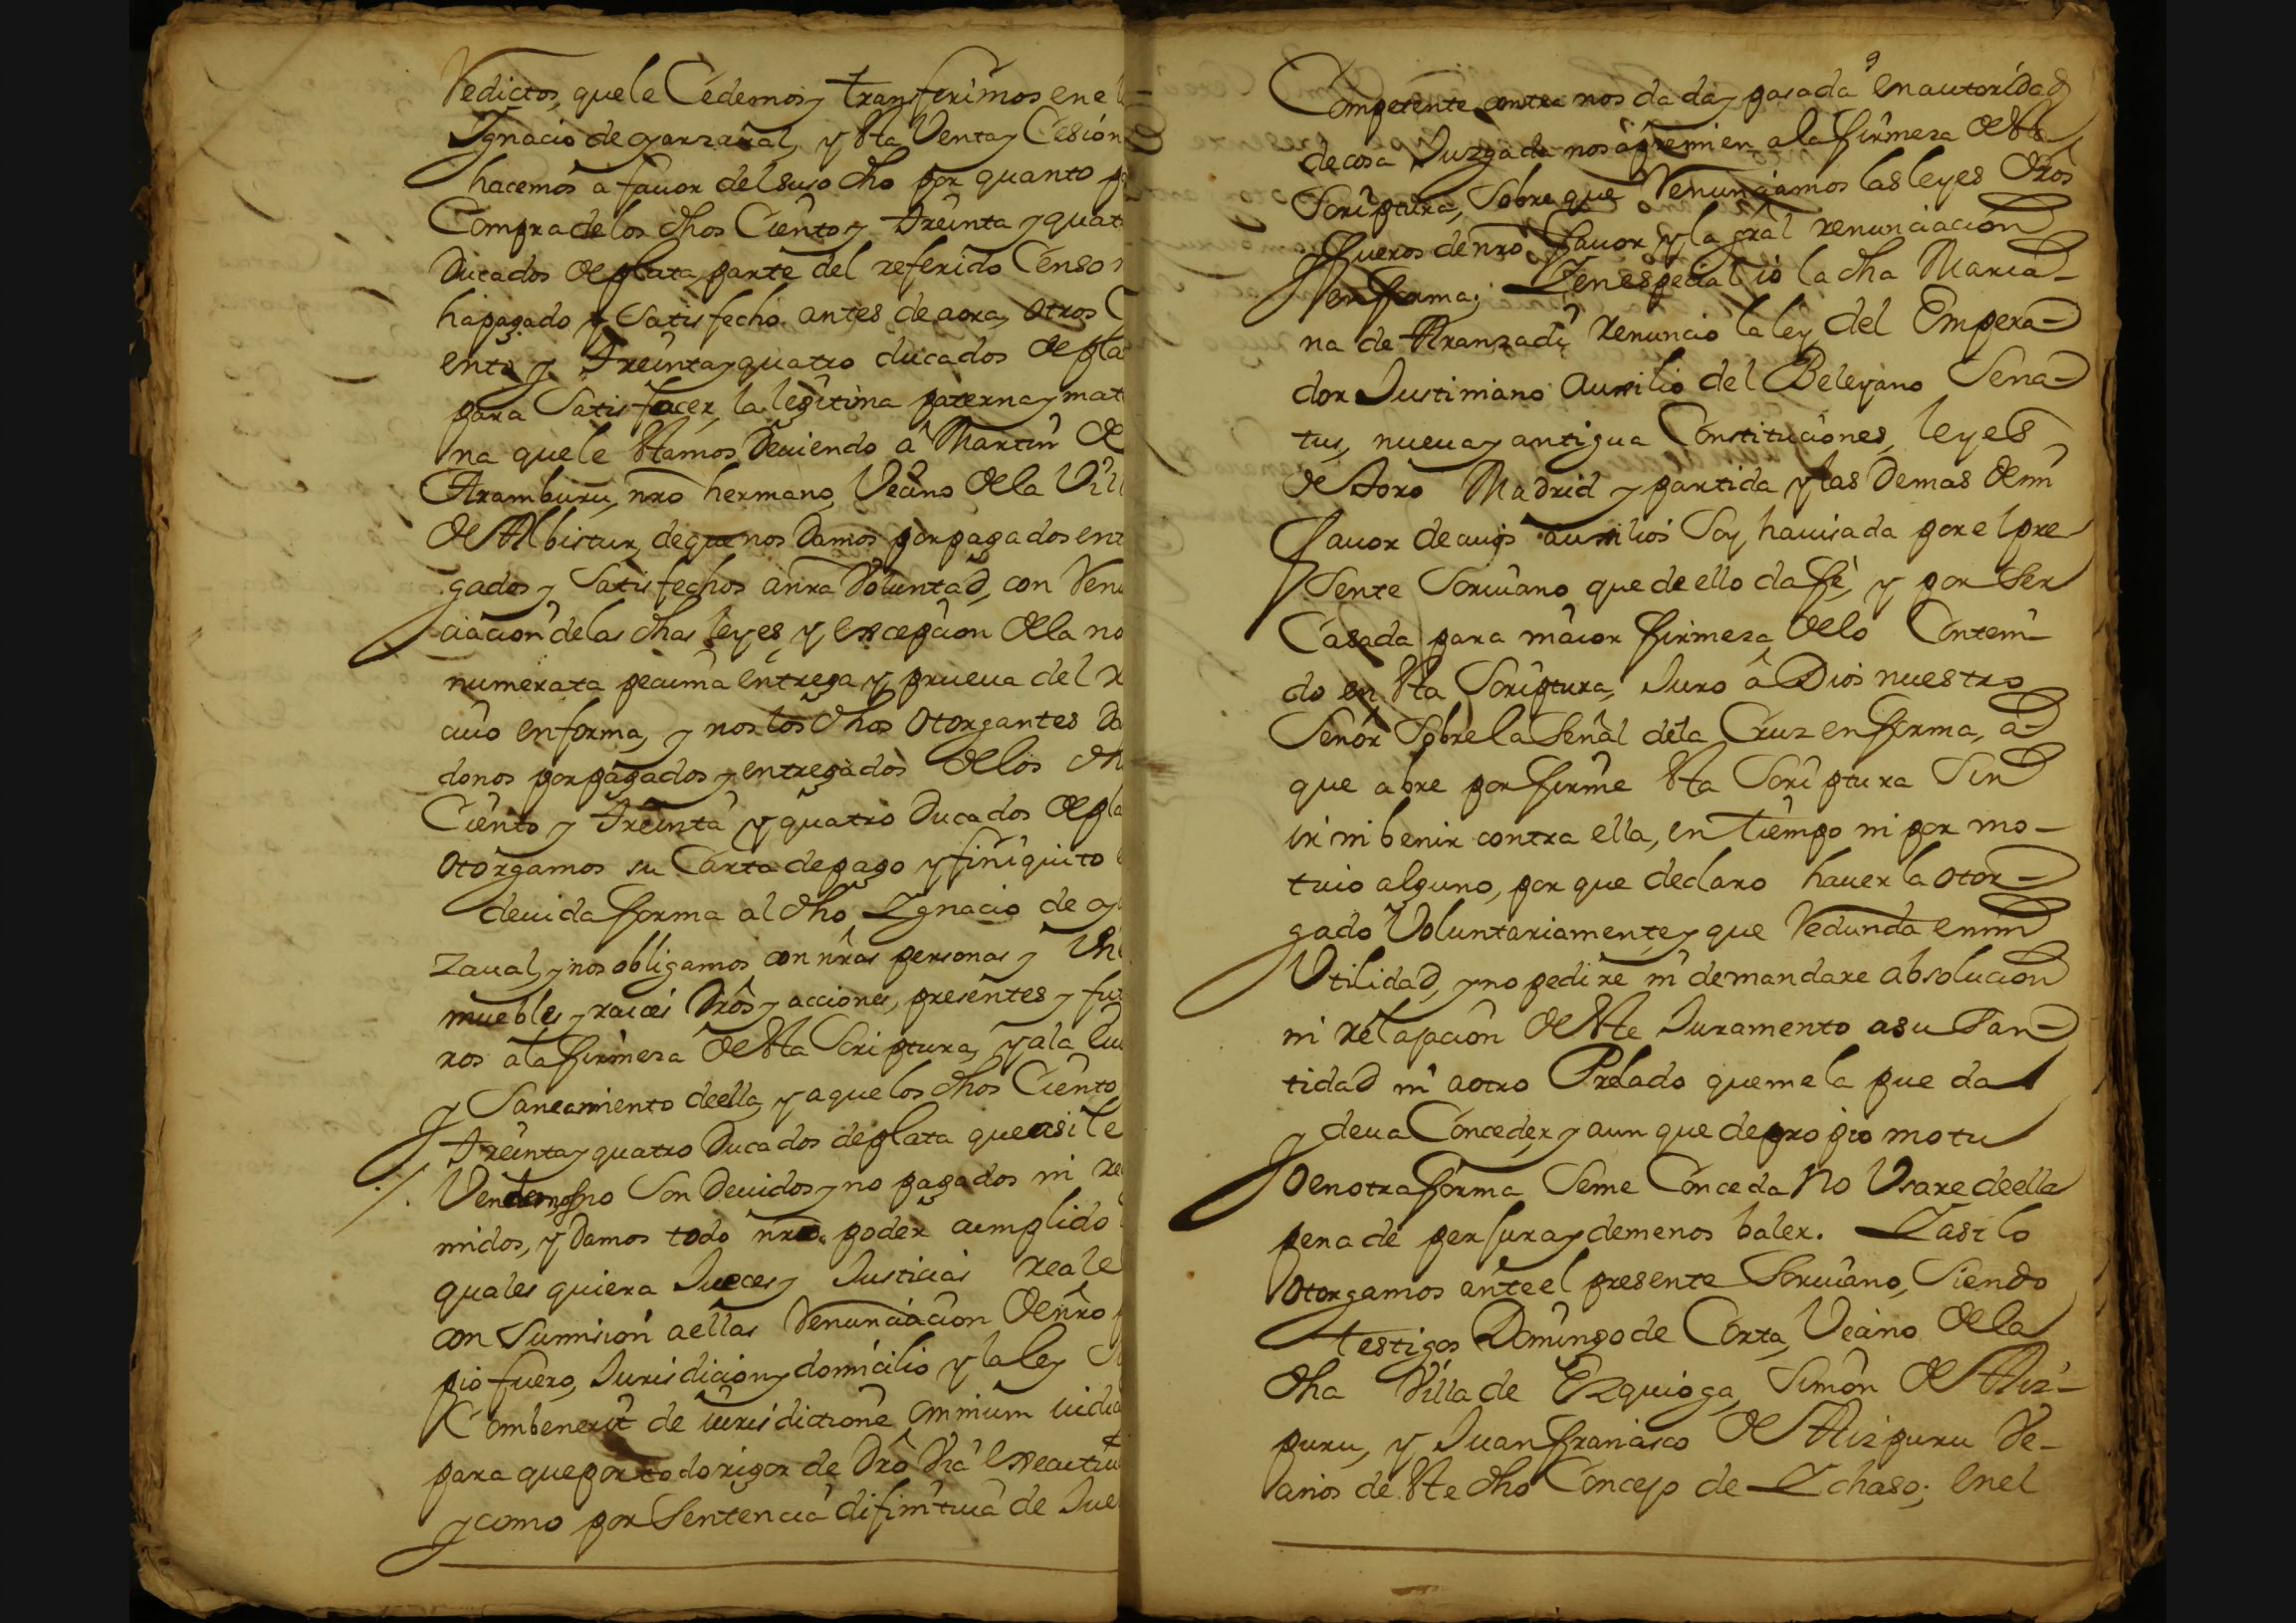 Redictos, que le Cedemos y transferimos en el
Ygnacio de oyarzaval, y Sta Venta y Cesión
hacemos a fauor del suso dho por quanto p
Compra de los dhos Ciento y treinta y quat
Ducados de plata parte del referido Censo
ha pagado y Satisfecho antes de aora, otros C
ento y treinta y quatro ducados de pla
para Satisfacer, la legitima paterna y mat
na que le Stamos Deuiendo á Martin de
Aramburu, nro hermano, Vecino de la Vil
de Albistur, de que nos Damos por pagados entr
gados y Satisfechos a nra Voluntad, con Renu
ciacion de las dhas leyes, y excepcion de la no
numerata pecunia entrega y prueua del r
ciuo en forma, y nos los dhos Otorgantes Da
donos por pagados y entregados de los dh
Ciento y treinta y quatro Ducados de pla
Otorgamos su Carta de pago y finiquito
deuida forma al dho Ygnacio de oy
zaual, y nos obligamos con nras personas y Vi
muebles y raices Dros y acciones, presentes y fut
ros a la firmeza de Sta Scriptura, y a la Eui
y Saneamiento de ella, y a que los dhos Ciento
treinta y quatro Ducados de plata que asi le
Vendemos no Son Deuidos y no pagados ni re
midos, y Damos todo nro poder cumplido
quales quiera Jueces y Justicias reale
con Sumision a ellas Renunciacion de nro p
pio fuero, Jurisdicion y domicilio y la ley Si
Combenerit de iurisdictione omnium iudic
para que por todo rigor de Dro Via executiu
y como por Sentencia difinitiua de Jue
9
Competente contra nos dada y pasada en autoridad
de cosa Juzgada nos apremien a la firmeza de Sta
Scriptura, Sobre que Renunciamos las leyes Dros
fueros de nro fauor y la gral renunciacion
en forma; Y en especial io la dha Maria-
na de Aranzadi Renuncio la ley del Empera-
dor Justiniano Auxilio del Beleyano Sena-
tus, nueua y antigua Constituciones, leyes
de toro Madrid y partida y las Demas de mi
fauor de cuios auxilios Soy hauisada por el pre
Sente Scriuano que de ello da fe, y por Ser
Casada para maior firmeza de lo Conteni-
do en Sta Scriptura, Juro â Dios nuestro
Señor Sobre la Señal de la Cruz en forma, a-
que abre por firme Sta Scriptura Sin
ir ni benir contra ella, en tiempo ni por mo-
tiuo alguno, por que declaro hauer la otor-
gado Voluntariamente y que Redunda en mi
Utilidad, y no pedire ni demandare absolucion
ni relajacion de Ste Juramento a su San-
tidad ni a otro Prelado que me la pueda
y deua Conceder y aun que de propio motu
O en otra forma Se me Conceda No Usare de ella
pena de perjura y de menos baler. Y asi lo
otorgamos ante el presente Scriuano, Siendo
testigos Domingo de Corta, Vecino de la
dha Villa de Ezquioga, Simon de Aiz-
puru, y Juan francisco de Aizpuru Ve-
cinos de Ste dho Concejo de Ychaso; en el